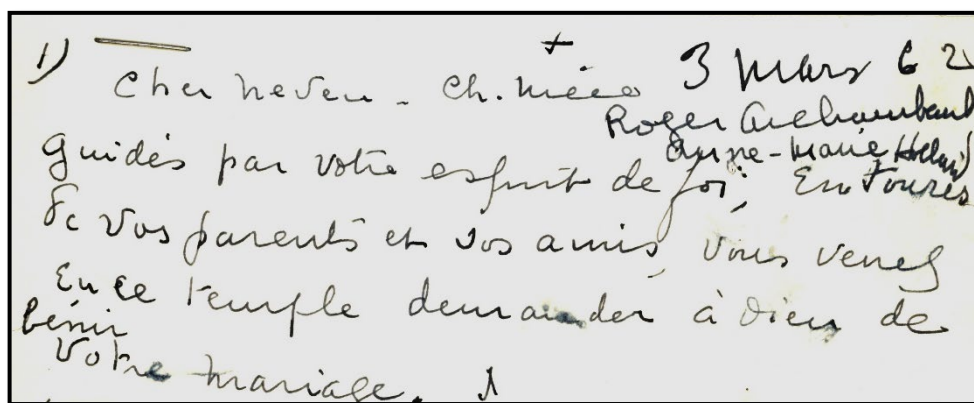 1)
+
Cher neveu - Ch. nièce 3 mars 62
Roger Archambault
Anne-Marie
guidés par votre esprit de foi, Entourés
de vos parents et vos amis, vous venez
En ce temple demander à Dieu de
bénir
votre mariage.